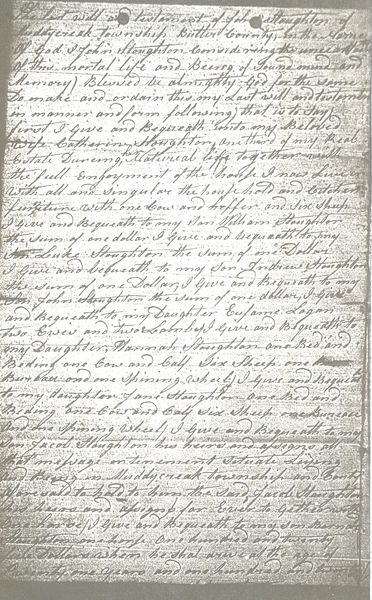 The last will and testament of John Stoughton of
Muddycreek township Butler County In the Name
of God I John Stoughton Considering the uncertainty
of this mortal life and Being of Sound mind and
Memory Blessed be almighty God for the same
Do make and ordain this my Last will and testament
in manner and form following that is to Say
first I Give and Bequeath unto my Beloved
Wife Catherine Stoughton one third of my Real
Estate Dureing Material life together with
the full Enjoyment of the house I now Live in
With all and Singular the house hold and Kitchen
furniture with one Cow and heffer and Six Sheep
I Give and Bequeath to my Son William Stoughton
the Sum of one dollar I Give and bequeath to my
Son Luke Stoughton the Sum of one Dollar
I Give and bequeath to my Son Andrew Stoughton
the Sum of one Dollar I Give and Bequeath to my
Son John Stoughton the Sum of one dollar, I Give
and Bequeath to my Daughter Eufame Logan
two Ewes and two Lambs I Give and Bequeath to
my Daughter Hannah Stoughton one Bed and
Beding one Cow and Calf Six Sheep one
Bureau and one Spining Wheel I Give and Bequeath
to my daughter Jane Stoughton one Bed and
Beding one Cow and Calf Six Sheep one Bureau
And one Spining Wheel I Give and Bequeath to my
Son Jacob Stoughton his heirs and assigns all
that mesuage or tenement Setuate Lying
and Being in Muddycreek township and County
aforesaid to hold to him the Said Jacob Stoughton
his heirs and assigns for Ever together with
one horse I Give and Bequeath to my Son
Stoughton one horse One hundred and twenty
Dollars when he shal arive at the age of
twenty one years and one hundred and